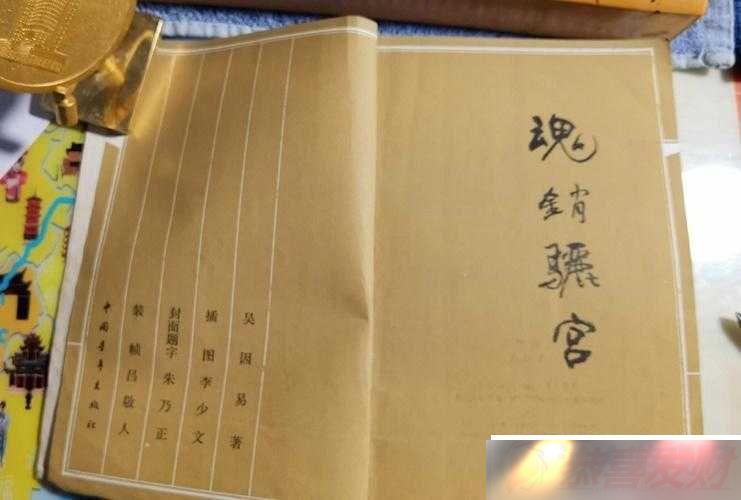 魂销驪宫
吴因易著
插图 李少文
封面题字 朱乃正
装帧 吕敬人
中国青年出版社